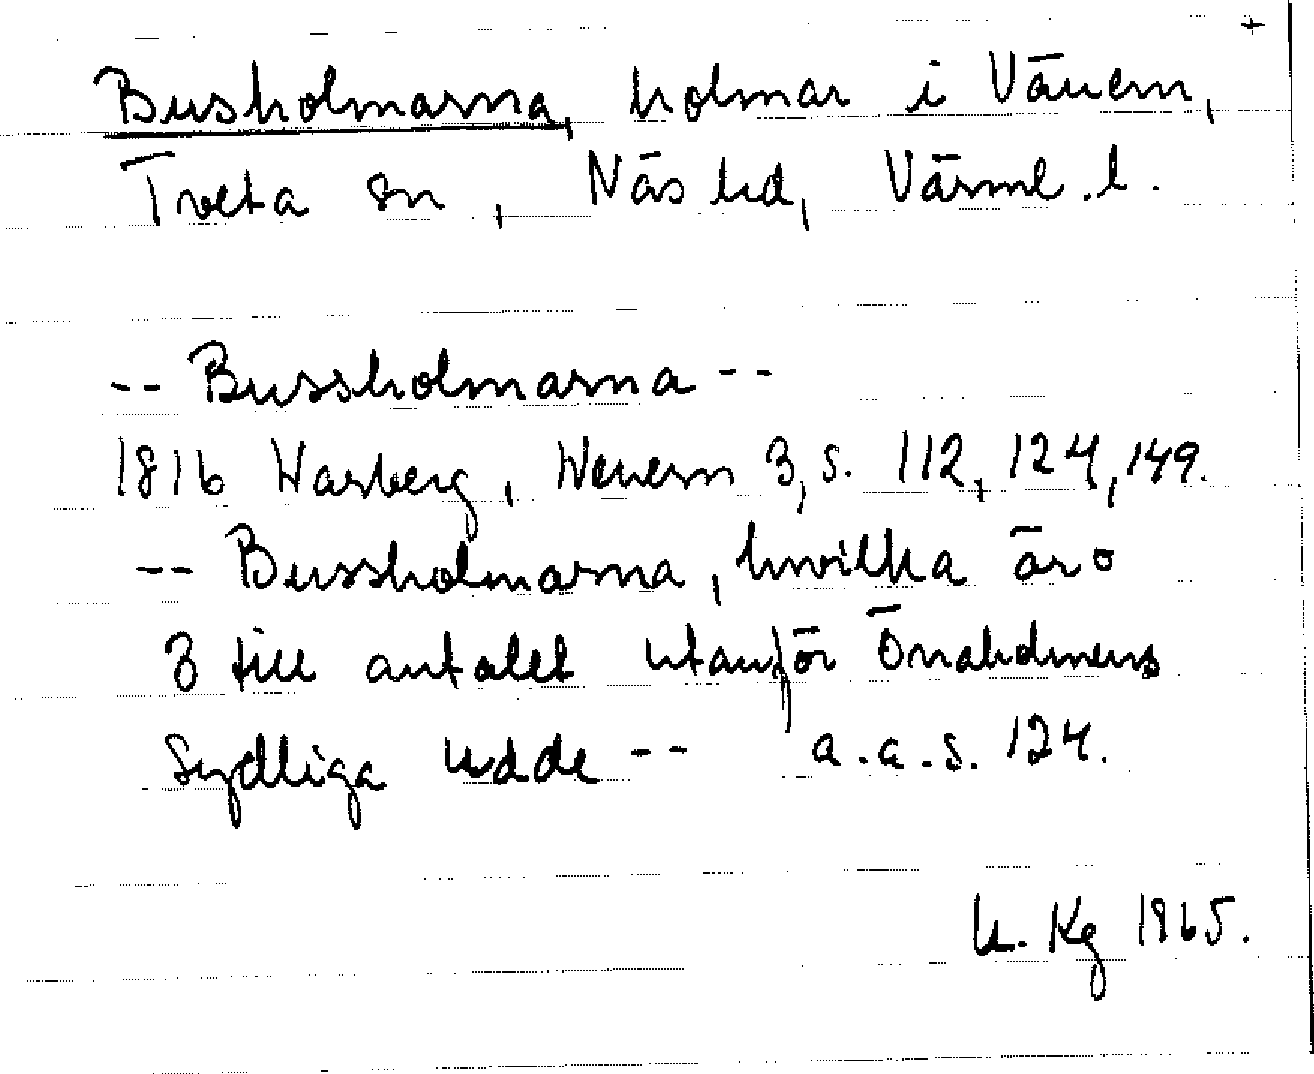 +
Busholmarna, holmar i Vänern,
Tveta sn, Näs hd, Värml. l.
-- Bussholmarna --
1816 Warberg, Wenern 3, s. 112, 124, 149.
-- Bussholmarna, hvilka äro
3 till antalet utanför Önaholmens
sydliga udde -- a.a.s. 124.
Kg 1965.